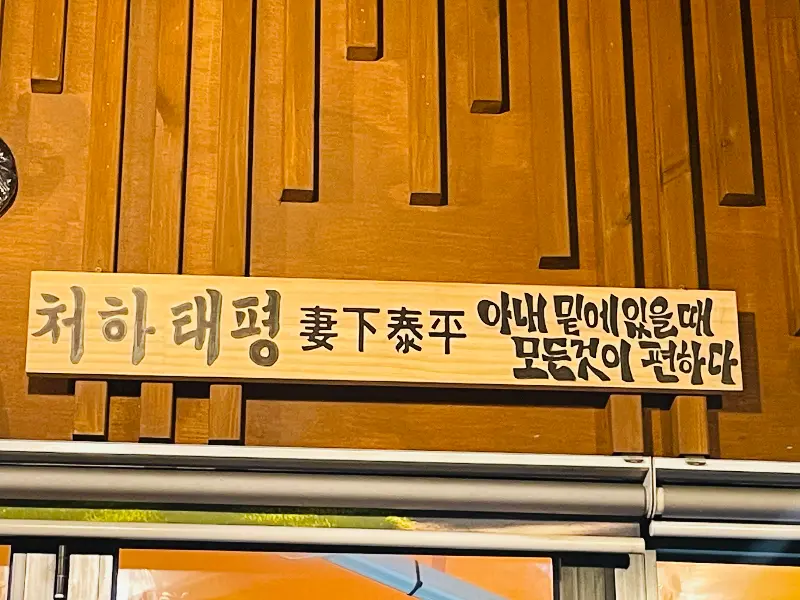 처하태평 妻下泰平 아내 밑에 있을 때
모든것이 편하다